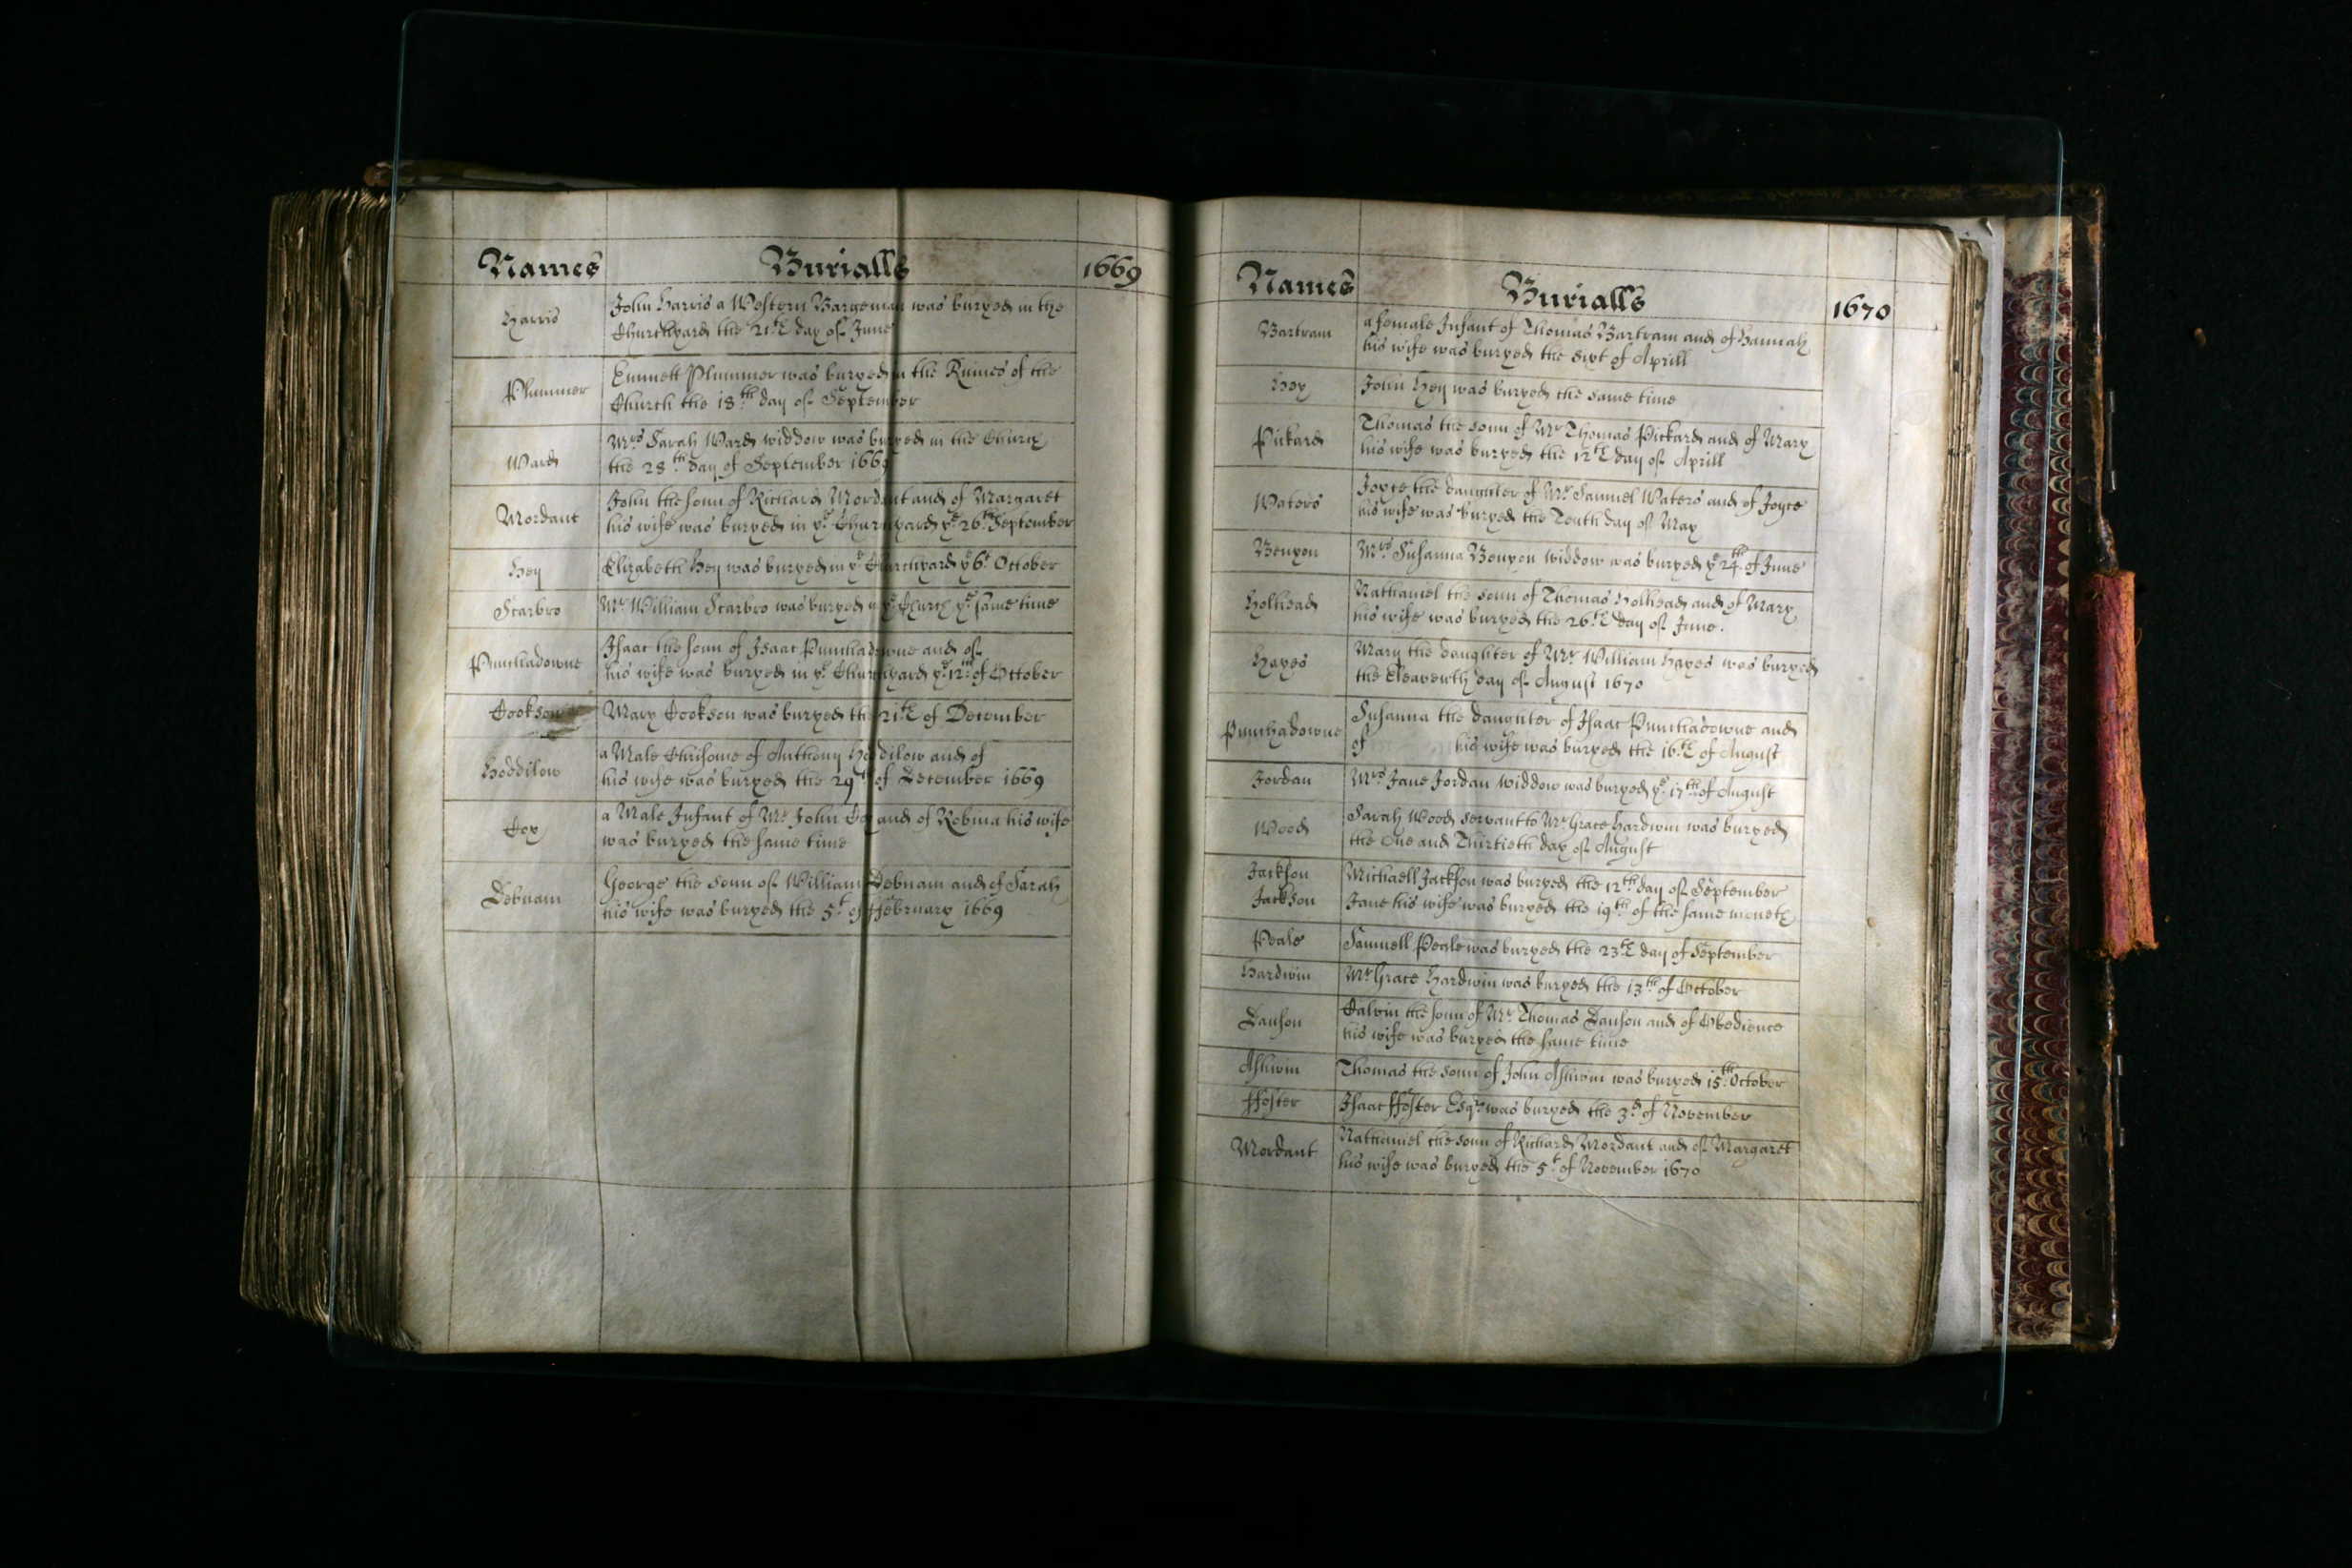 Names Burialls 1669
Harris John Harris a Western Bargeman was buryed in the
Churchyard the 21th day of June
Plummer Emmett Plummer was buryed in the Ruines of the
Church the 18th day of September
Ward Mrs Sarah Ward widdow was buryed in the Church
the 28th day of September 1669
Mordant John the sonn of Richard Mordant and of Margaret
his wife was buryed in ye Churchyard ye 26th September
Hey Elizabeth Hey was buryed in ye Churchyard ye 6t October
Scarbro Mr William Scarbro was buryed in ye Church ye same time
Punchadowne Isaac the sonn of Isaac Punchadowne and of
his wife was buryed in ye Churchyard ye 12th of October
Cookson Mary Cookson was buryed the 21th of December
Hoddilow a Male Chrisome of Anthony Hoddilow and of
his wife was buryed the 29th of December 1669
Cox a Male Infant of Mr John Cox and of Robina his wife
was buryed the same time
Debnam George the sonn of William Debnam and of Sarah
his wife was buryed the 5t of ffebruary 1669
Names Burialls 1670
Bartram a female Infant of Thomas Bartram and of Hannah
his wife was buryed the Sixt of Aprill
Hey John Hey was buryed the same time
Pickard Thomas the sonn of Mr Thomas Pickard and of Mary
his wife was buryed the 12th day of Aprill
Waters Joyce the daughter of Mr Samuel Waters and of Joyce
his wife was buryed the Tenth day of May
Benyon Mrs Susanna Benyon widdow was buryed ye 24th of June
Hollhead Nathaniel the sonn of Thomas Hollhead and of Mary
his wife was buryed the 26th day of June.
Hayes Mary the daughter of Mr William Hayes was buryed
the Eleaventh day of August 1670
Punchadowne Susanna the daughter of Isaac Punchadowne and
of his wife was buryed the 16th of August
Jordan Mrs Jane Jordan widdow was buryed ye 17th of August
Wood Sarah Wood servant to Mr Grace Hardwin was buryed
the One and Thirtieth day of August
Jackson Michaell Jackson was buryed the 12th day of September
Jackson Jane his wife was buryed the 19th of the same moneth
Peale Samuell Peale was buryed the 23th day of September
Hardwin Mr Grace Hardwin was buryed the 13th of October
Danson Calvin the sonn of Mr Thomas Danson and of Obedience
his wife was buryed the same time
Ashwin Thomas the sonn of John Ashwin was buryed 15th October
ffoster Isaac ffoster Esqr was buryed the 3d of November
Mordant Nathaniel the sonn of Richard Mordant and of Margaret
his wife was buryed the 5t of November 1670